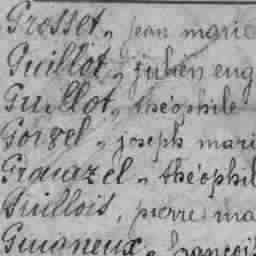 Grosset, jean marie
Guillot, julien eug
Guillot, théophile
Gorgel, joseph mari
Grouazel, théophil
Guillois, pierre ma
Guigneux, françois